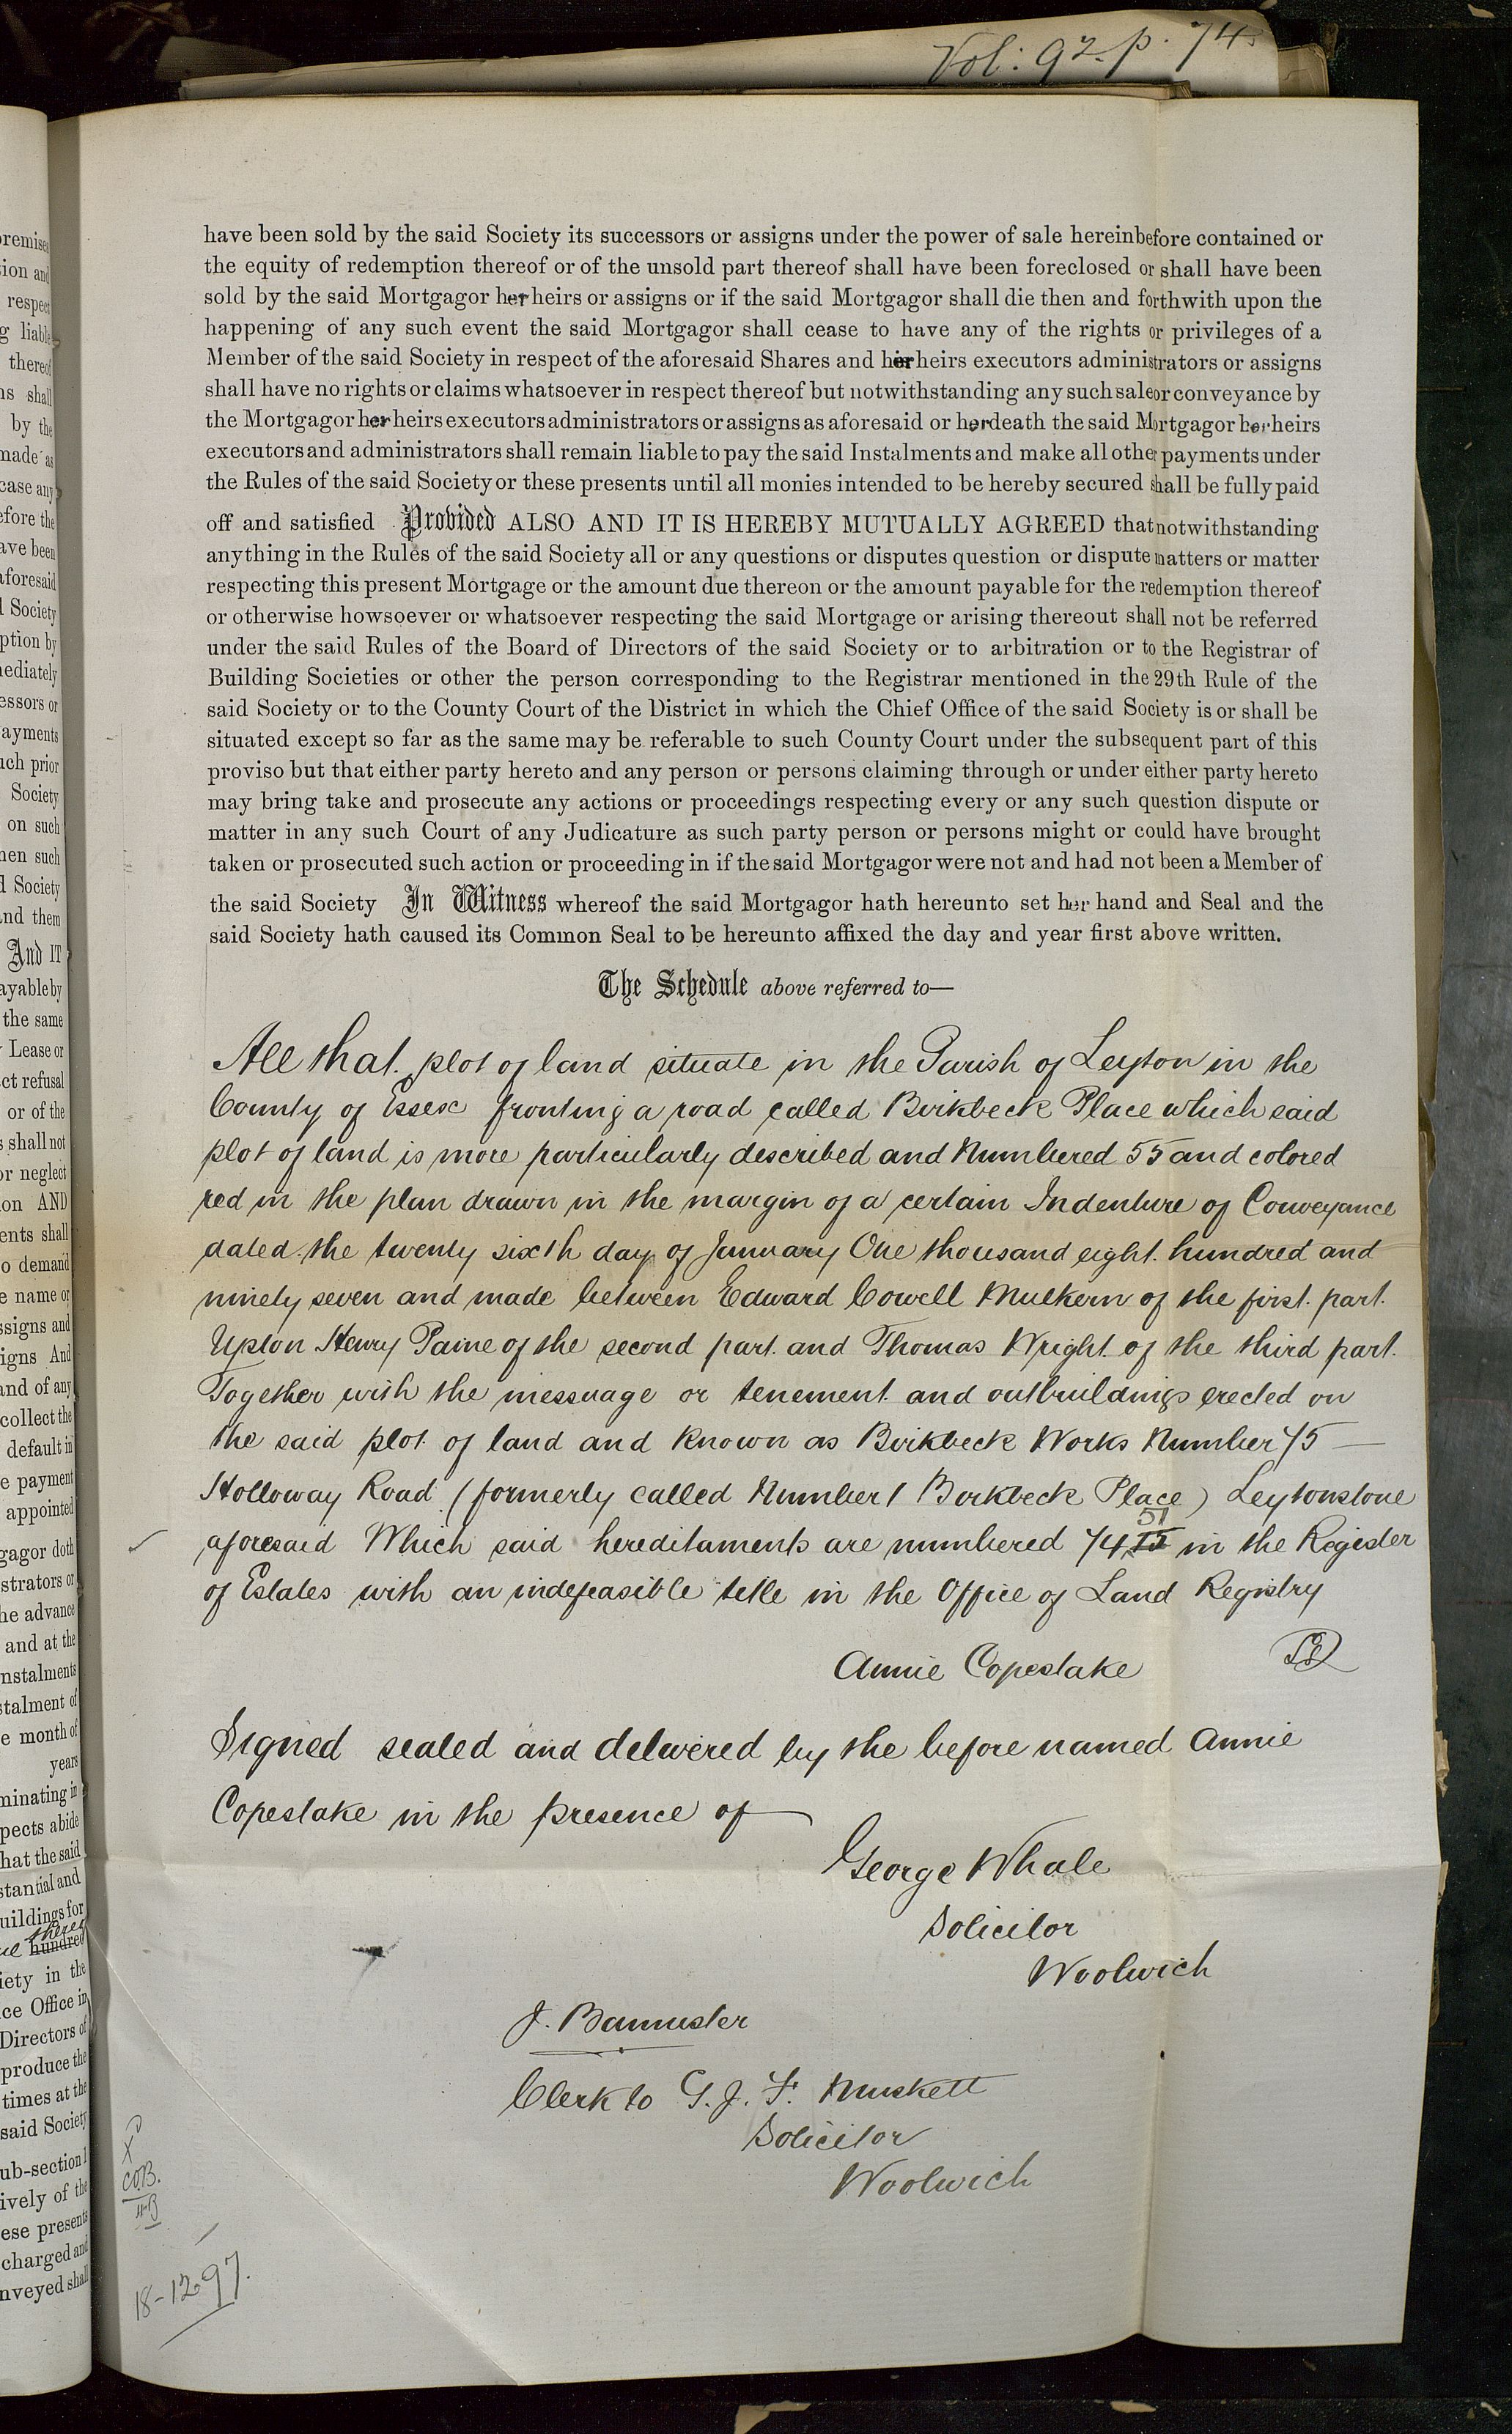 Vol: 92. p. 74
have been sold by the said Society its successors or assigns under the power of sale hereinbefore contained or
the equity of redemption thereof or of the unsold part thereof shall have been foreclosed or shall have been
sold by the said Mortgagor her heirs or assigns or if the said Mortgagor shall die then and forthwith upon the
happening of any such event the said Mortgagor shall cease to have any of the rights or privileges of a
Member of the said Society in respect of the aforesaid Shares and her heirs executors administrators or assigns
shall have no rights or claims whatsoever in respect thereof but notwithstanding any such sale or conveyance by
the Mortgagor her heirs executors administrators or assigns as aforesaid or her death the said Mortgagor her heirs
executors and administrators shall remain liable to pay the said Instalments and make all other payments under
the Rules of the said Society or these presents until all monies intended to be hereby secured shall be fully paid
off and satisfied Provided ALSO AND IT IS HEREBY MUTUALLY AGREED that notwithstanding
anything in the Rules of the said Society all or any questions or disputes question or dispute matters or matter
respecting this present Mortgage or the amount due thereon or the amount payable for the redemption thereof
or otherwise howsoever or whatsoever respecting the said Mortgage or arising thereout shall not be referred
under the said Rules of the Board of Directors of the said Society or to arbitration or to the Registrar of
Building Societies or other the person corresponding to the Registrar mentioned in the 29th Rule of the
said Society or to the County Court of the District in which the Chief Office of the said Society is or shall be
situated except so far as the same may be referable to such County Court under the subsequent part of this
proviso but that either party hereto and any person or persons claiming through or under either party hereto
may bring take and prosecute any actions or proceedings respecting every or any such question dispute or
matter in any such Court of any Judicature as such party person or persons might or could have brought
taken or prosecuted such action or proceeding in if the said Mortgagor were not and had not been a Member of
the said Society In Witness whereof the said Mortgagor hath hereunto set her hand and Seal and the
said Society hath caused its Common Seal to be hereunto affixed the day and year first above written.
The Schedule above referred to—
All that plot of land situate in the Parish of Leyton in the
County of Essex fronting a road called Birkbeck Place which said
plot of land is more particularly described and Numbered 55 and colored
red in the plan drawn in the margin of a certain Indenture of Conveyance
dated the twenty sixth day of January One thousand eight hundred and
ninety seven and made between Edward Cowell Mulkern of the first part
Upton Henry Paine of the second part and Thomas Wright of the third part
Together with the messuage or tenement and outbuildings erected on
the said plot of land and known as Birkbeck Works Number 75
Holloway Road (formerly called Number 1 Birkbeck Place) Leytonstone
aforesaid Which said hereditaments are numbered 74 51 in the Register
of Estates with an indefeasible title in the Office of Land Registry
Annie Copestake
Signed sealed and delivered by the before named Annie
Copestake in the presence of
George Whale
Solicitor
Woolwich
J. Bannister
Clerk to G. J. F. Muskett
Solicitor
Woolwich
18-12-97.